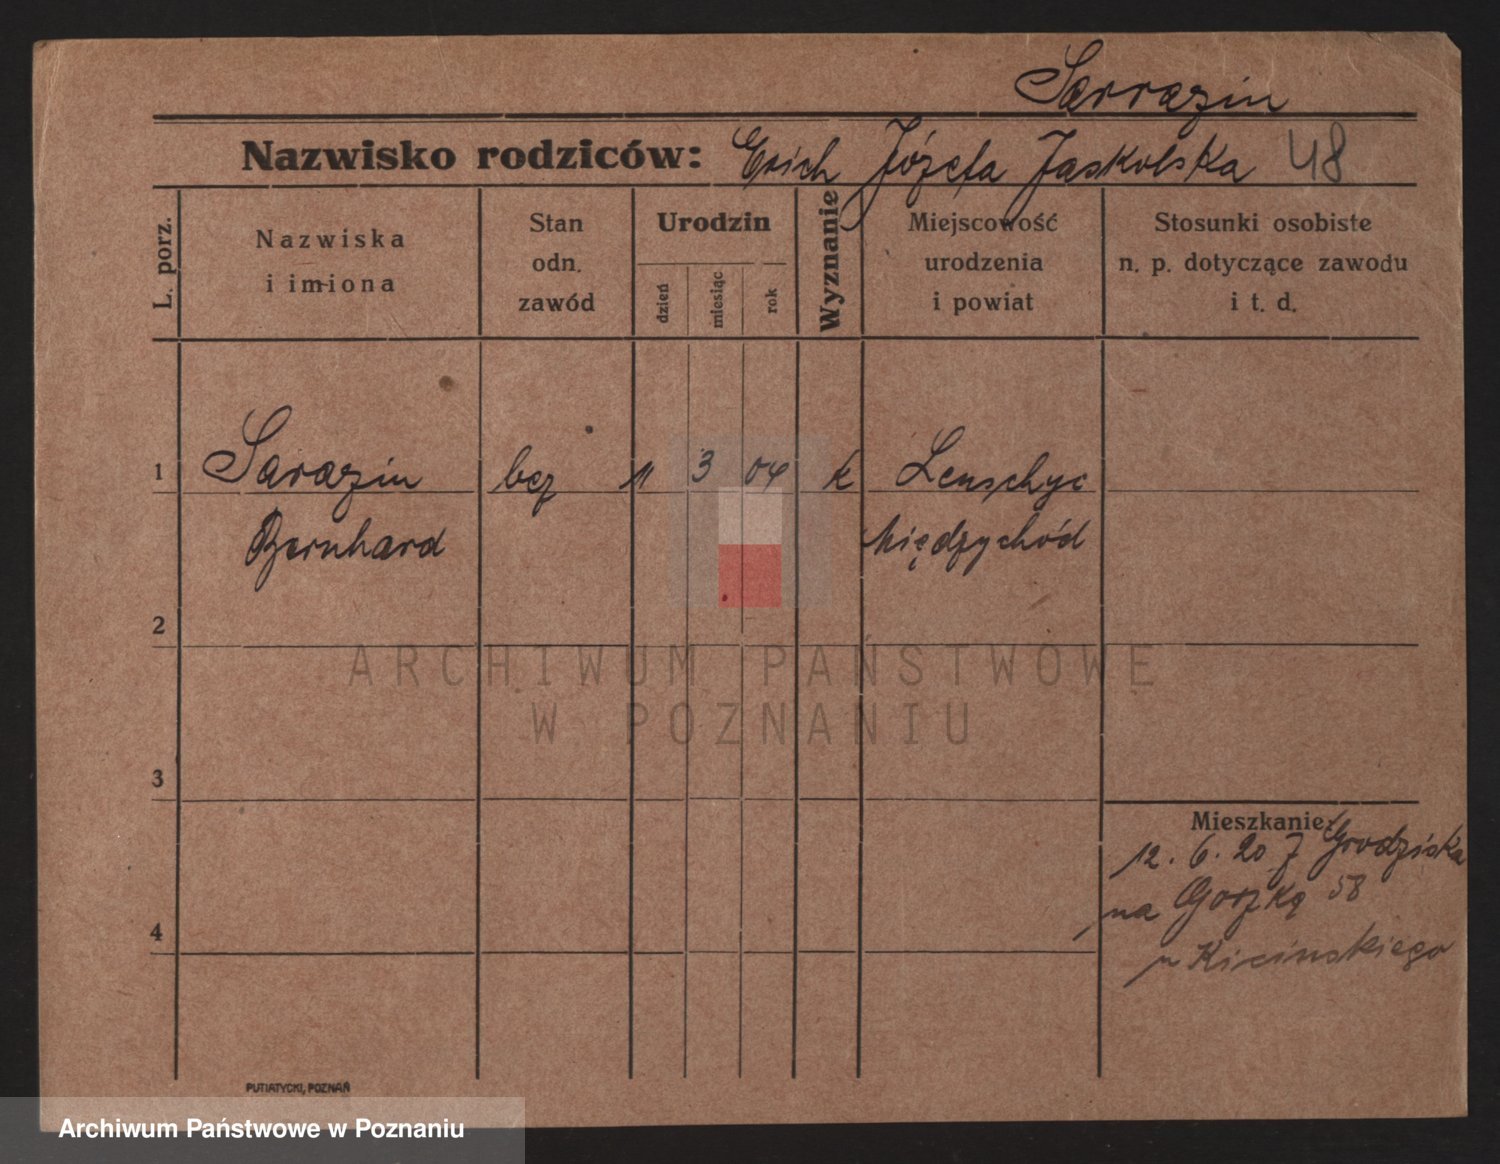 Sarrazin
Nazwisko rodziców: Erich Józefa Jaskolska 48
L. porz.
Nazwiska
i imiona
Stan
odn.
zawód
Urodzin
dzień
miesiąc
rok
Wyznanie
Miejscowość
urodzenia
i powiat
Stosunki osobiste
n. p. dotyczące zawodu
i t. d.
1 Sarazin bez 11 3 04 k Lenschyc
Bernhard Międzychód
2
ARCHIWUM PAŃSTWOWE
W POZNANIU
3
Mieszkanie:
12. 6. 20 z Grodziska
na Gorzką 58
4
u Kicinskiego
PUTIATYCKI, POZNAŃ
Archiwum Państwowe w Poznaniu